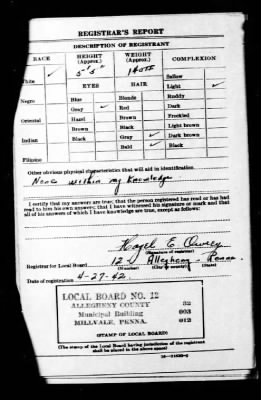 REGISTRAR'S REPORT
DESCRIPTION OF REGISTRANT
RACE HEIGHT (Approx.) WEIGHT (Approx.) COMPLEXION
5' 5" 140
White ✓ Sallow
EYES HAIR Light ✓
Negro Blue Blonde Ruddy
Gray ✓ Red Dark
Oriental Hazel Brown Freckled
Brown Black Light brown
Indian Black Gray ✓ Dark brown
Bald ✓ Black
Filipino
Other obvious physical characteristics that will aid in identification
None within my knowledge
I certify that my answers are true; that the person registered has read or has had
read to him his own answers; that I have witnessed his signature or mark and that
all of his answers of which I have knowledge are true, except as follows:
Hazel E.
(Signature of registrar)
Registrar for Local Board 12 Allegheny Penna.
(Number) (City or county) (State)
Date of registration 4-27-42
LOCAL BOARD NO. 12
ALLEGHENY COUNTY 32
Municipal Building 003
MILLVALE, PENNA. 012
(STAMP OF LOCAL BOARD)
(The stamp of the Local Board having jurisdiction of the registrant
shall be placed in the above space)